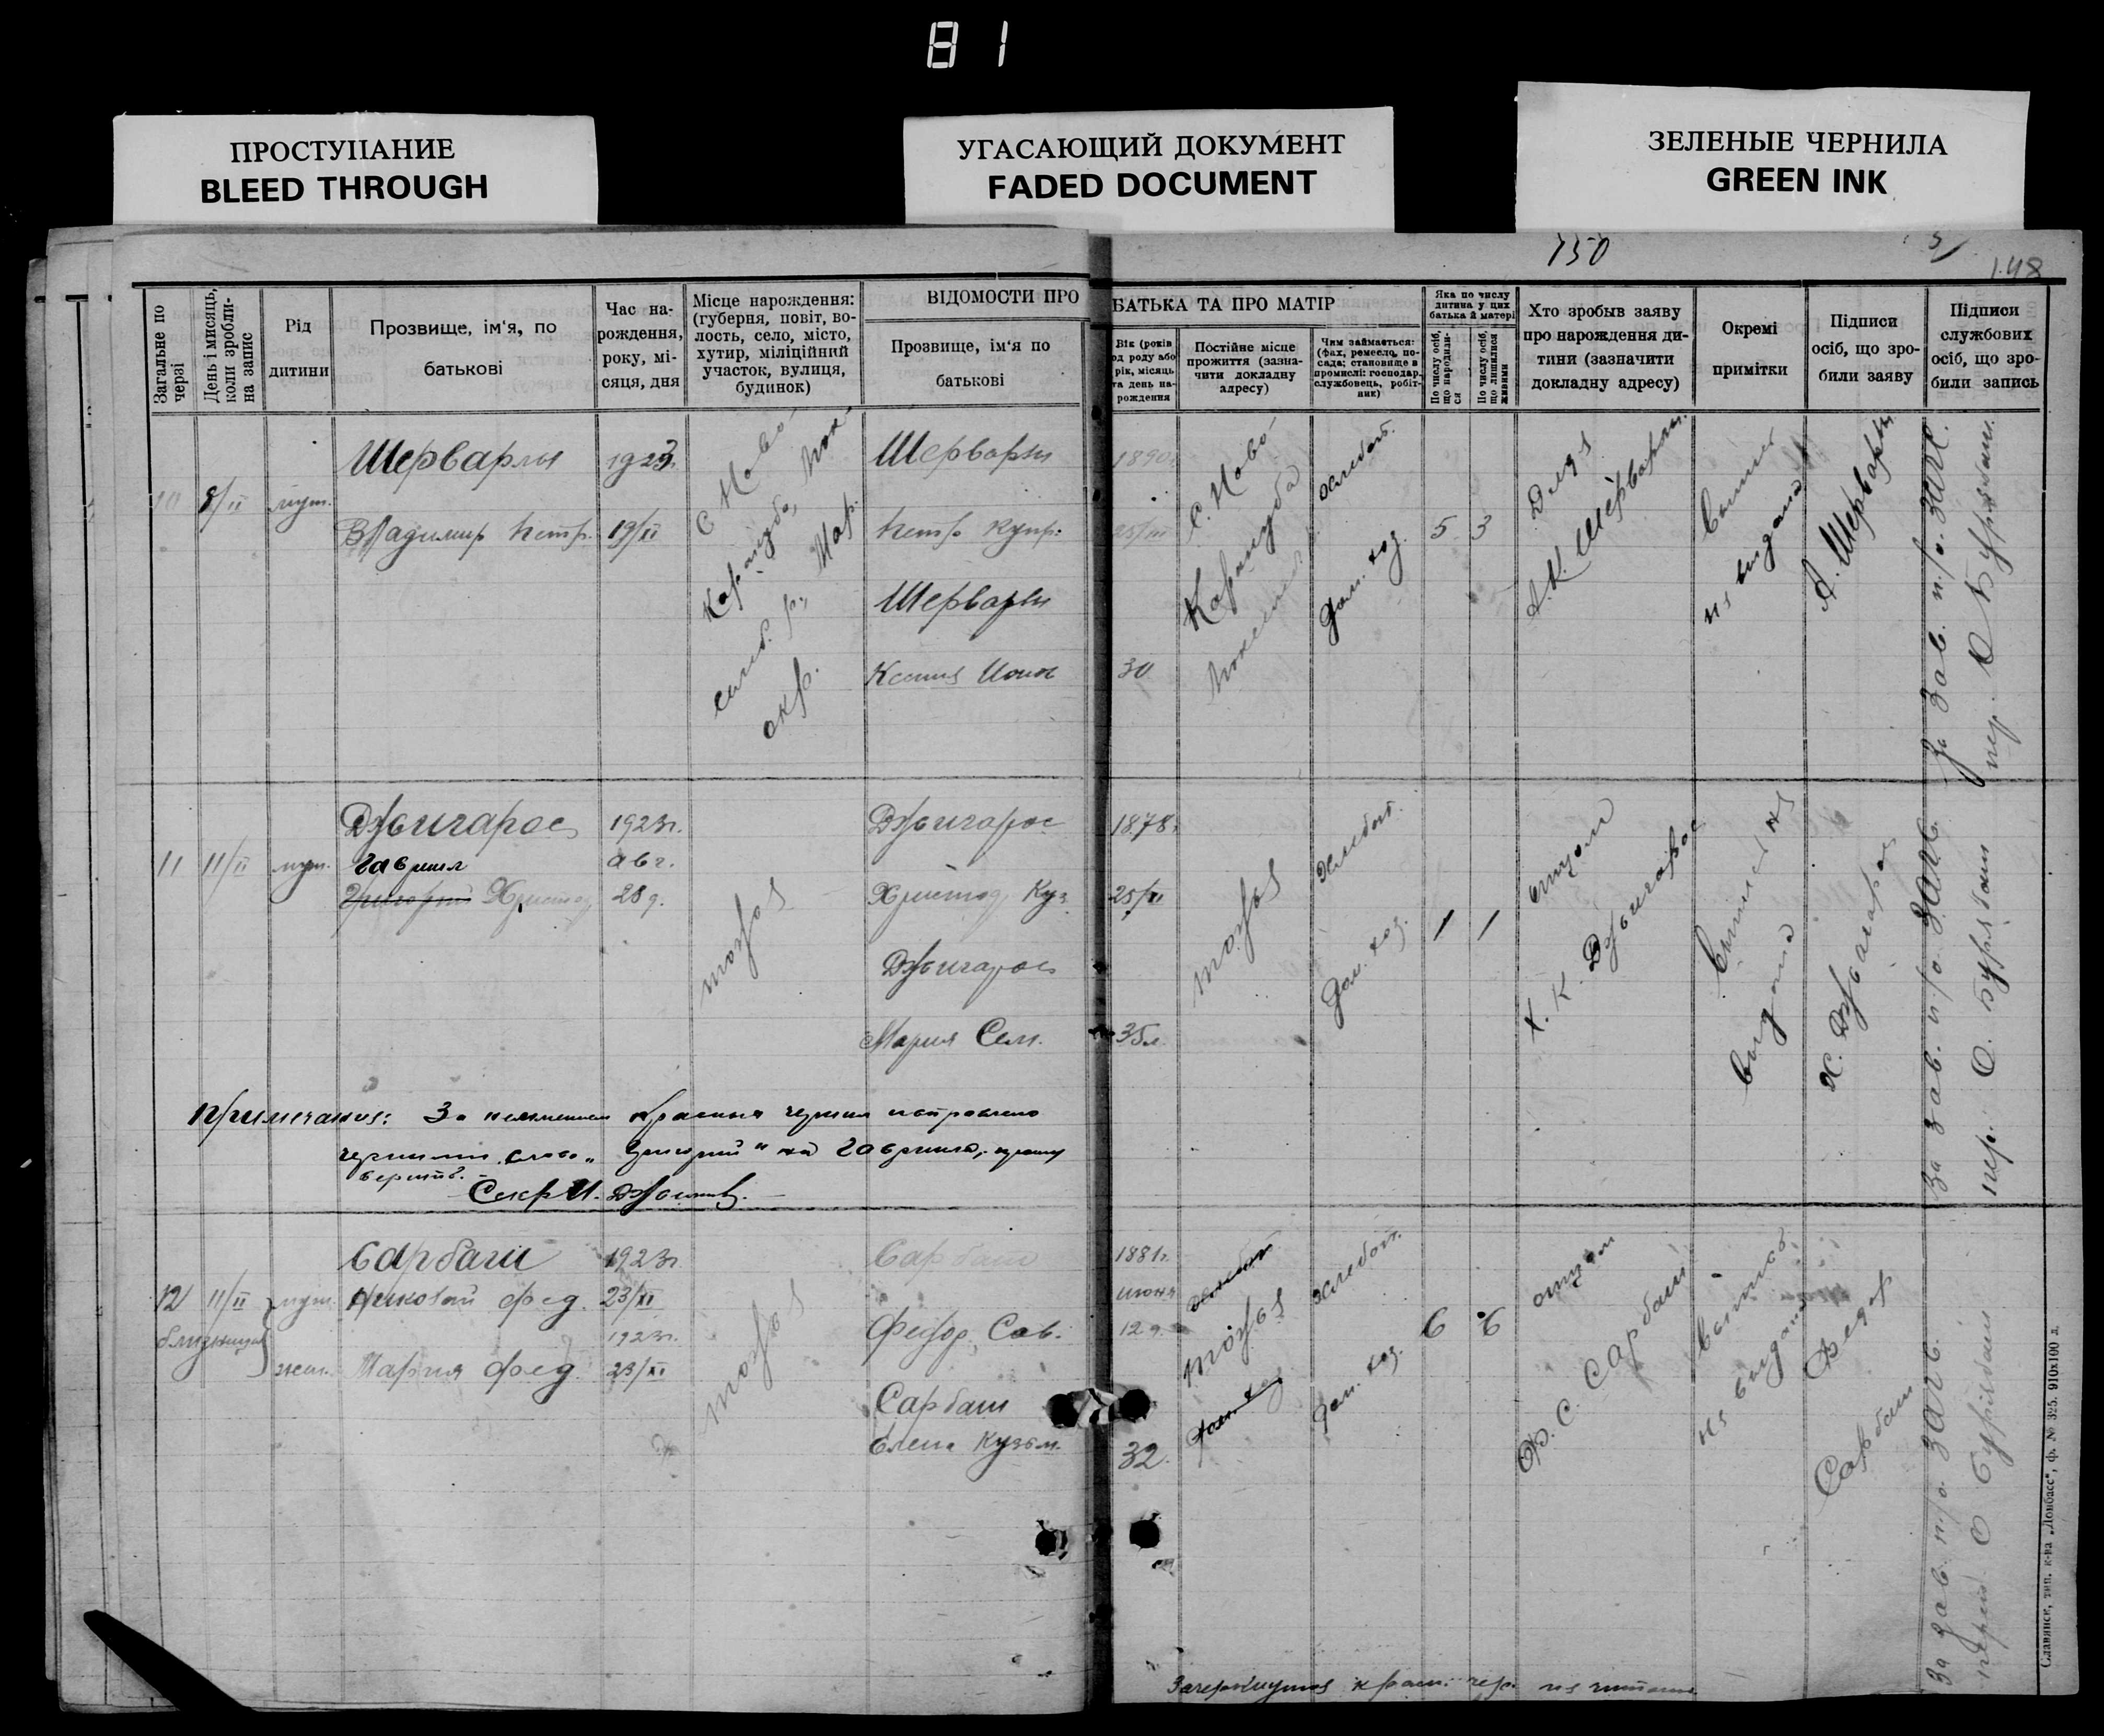 81
ПРОСТУПАНИЕ
BLEED THROUGH
УГАСАЮЩИЙ ДОКУМЕНТ
FADED DOCUMENT
ЗЕЛЕНЫЕ ЧЕРНИЛА
GREEN INK
150
148
Загальне по
черзі
День і мисяць,
коли зробли-
на запис
Рід
дитини
Прозвище, ім'я, по
батькові
Час на-
рождення,
року, мі-
сяця, дня
Місце нарождення:
(губерня, повіт, во-
лость, село, місто,
хутир, міліційний
участок, вулиця,
будинок)
ВІДОМОСТИ ПРО
Прозвище, ім'я по
батькові
БАТЬКА ТА ПРО МАТІР
Вік (років
од роду або
рік, місяць
та день на-
рождення
Постійне місце
прожиття (зазна-
чити докладну
адресу)
Чим займається:
(фах, ремесло, по-
сада; становище в
промислі: господар,
службовець, робіт-
ник)
Яка по числу
дитина у цих
батька й матері
По числу осіб,
що народили-
ся
По числу осіб,
що лишилися
живими
Хто зробыв заяву
про нарождення ди-
тини (зазначити
докладну адресу)
Окремі
примітки
Підписи
осіб, що зро-
били заяву
Підписи
службових
осіб, що зро-
били запись
10
8/II
муж.
Шерварлы
Владимир Петр.
1923г.
19/XI
С. Ново-
Каракуба,
окр.
Шерварлы
Петр Купр.
Шерварлы
Ксения
1890г.
25/III
30
с. Ново-
Каракуба
хлебоп.
дом. хоз.
5 3
Дядя
К. Шерварлы
Выпись
не выдана
А. Шерварлы
За Зав. п/о. ЗАГС.
11
11/II
муж.
Джигарос
Гавриил
Григорий Христод
1923г.
авг.
28 д.
тоже
Джигарос
Христод. Куз
Джигарос
Мария Сем.
1878г.
25/XI
35 л.
тоже
хлебоп.
дом. хоз.
1 1
отцом
Х. К. Джигарос
Выпись не
выдана
Х. Джигарос
За Зав. п/о. ЗАГС
Примечание: За неимением красных чернил исправлено
чернилами слово „Григорий“ на Гавриила,
верить.
Секр И.
12
11/II
близнецы
муж.
жен.
Сарбаш
Николай Фед.
Мария Фед.
1923г.
23/XI
1923г.
23/XI
тоже
Сарбаш
Федор Сав.
Сарбаш
Елена Кузьм.
1881г.
июня
12 д.
32
тоже
хлебоп.
дом. хоз.
6 6
отцом
Ф. С. Сарбаш
Выпись
не выдана
Федор
Сарбаш
За Зав. п/о. ЗАГС.
Зачеркнутое не читать
Славянск, тип. к-ва „Донбасс“, ф. № 325. 910х100 д.